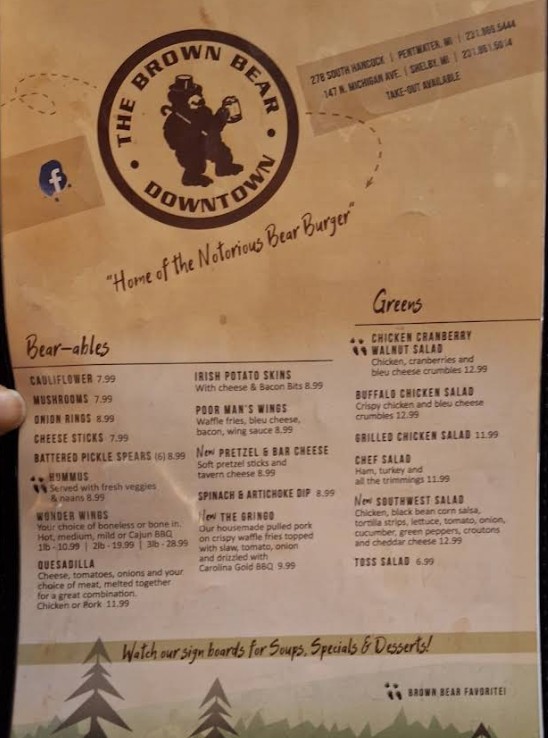 THE BROWN BEAR
DOWNTOWN
278 SOUTH HANCOCK | PENTWATER, MI | 231.869.5444
147 N. MICHIGAN AVE. | SHELBY, MI | 231.861.5014
TAKE-OUT AVAILABLE
f
"Home of the Notorious Bear Burger"
Bear-ables
CAULIFLOWER 7.99
MUSHROOMS 7.99
ONION RINGS 8.99
CHEESE STICKS 7.99
BATTERED PICKLE SPEARS (6) 8.99
HUMMUS
Served with fresh veggies
& naans 8.99
WUNDER WINGS
Your choice of boneless or bone in.
Hot, medium, mild or Cajun BBQ
1lb - 10.99 | 2lb - 19.99 | 3lb - 28.99
QUESADILLA
Cheese, tomatoes, onions and your
choice of meat, melted together
for a great combination.
Chicken or Pork 11.99
IRISH POTATO SKINS
With cheese & Bacon Bits 8.99
POOR MAN'S WINGS
Waffle fries, bleu cheese,
bacon, wing sauce 8.99
New PRETZEL & BAR CHEESE
Soft pretzel sticks and
tavern cheese 8.99
SPINACH & ARTICHOKE DIP 8.99
New THE GRINGO
Our housemade pulled pork
on crispy waffle fries topped
with slaw, tomato, onion
and drizzled with
Carolina Gold BBQ 9.99
Greens
CHICKEN CRANBERRY
WALNUT SALAD
Chicken, cranberries and
bleu cheese crumbles 12.99
BUFFALO CHICKEN SALAD
Crispy chicken and bleu cheese
crumbles 12.99
GRILLED CHICKEN SALAD 11.99
CHEF SALAD
Ham, turkey and
all the trimmings 11.99
New SOUTHWEST SALAD
Chicken, black bean corn salsa,
tortilla strips, lettuce, tomato, onion,
cucumber, green peppers, croutons
and cheddar cheese 12.99
TOSS SALAD 6.99
Watch our sign boards for Soups, Specials & Desserts!
BROWN BEAR FAVORITE!